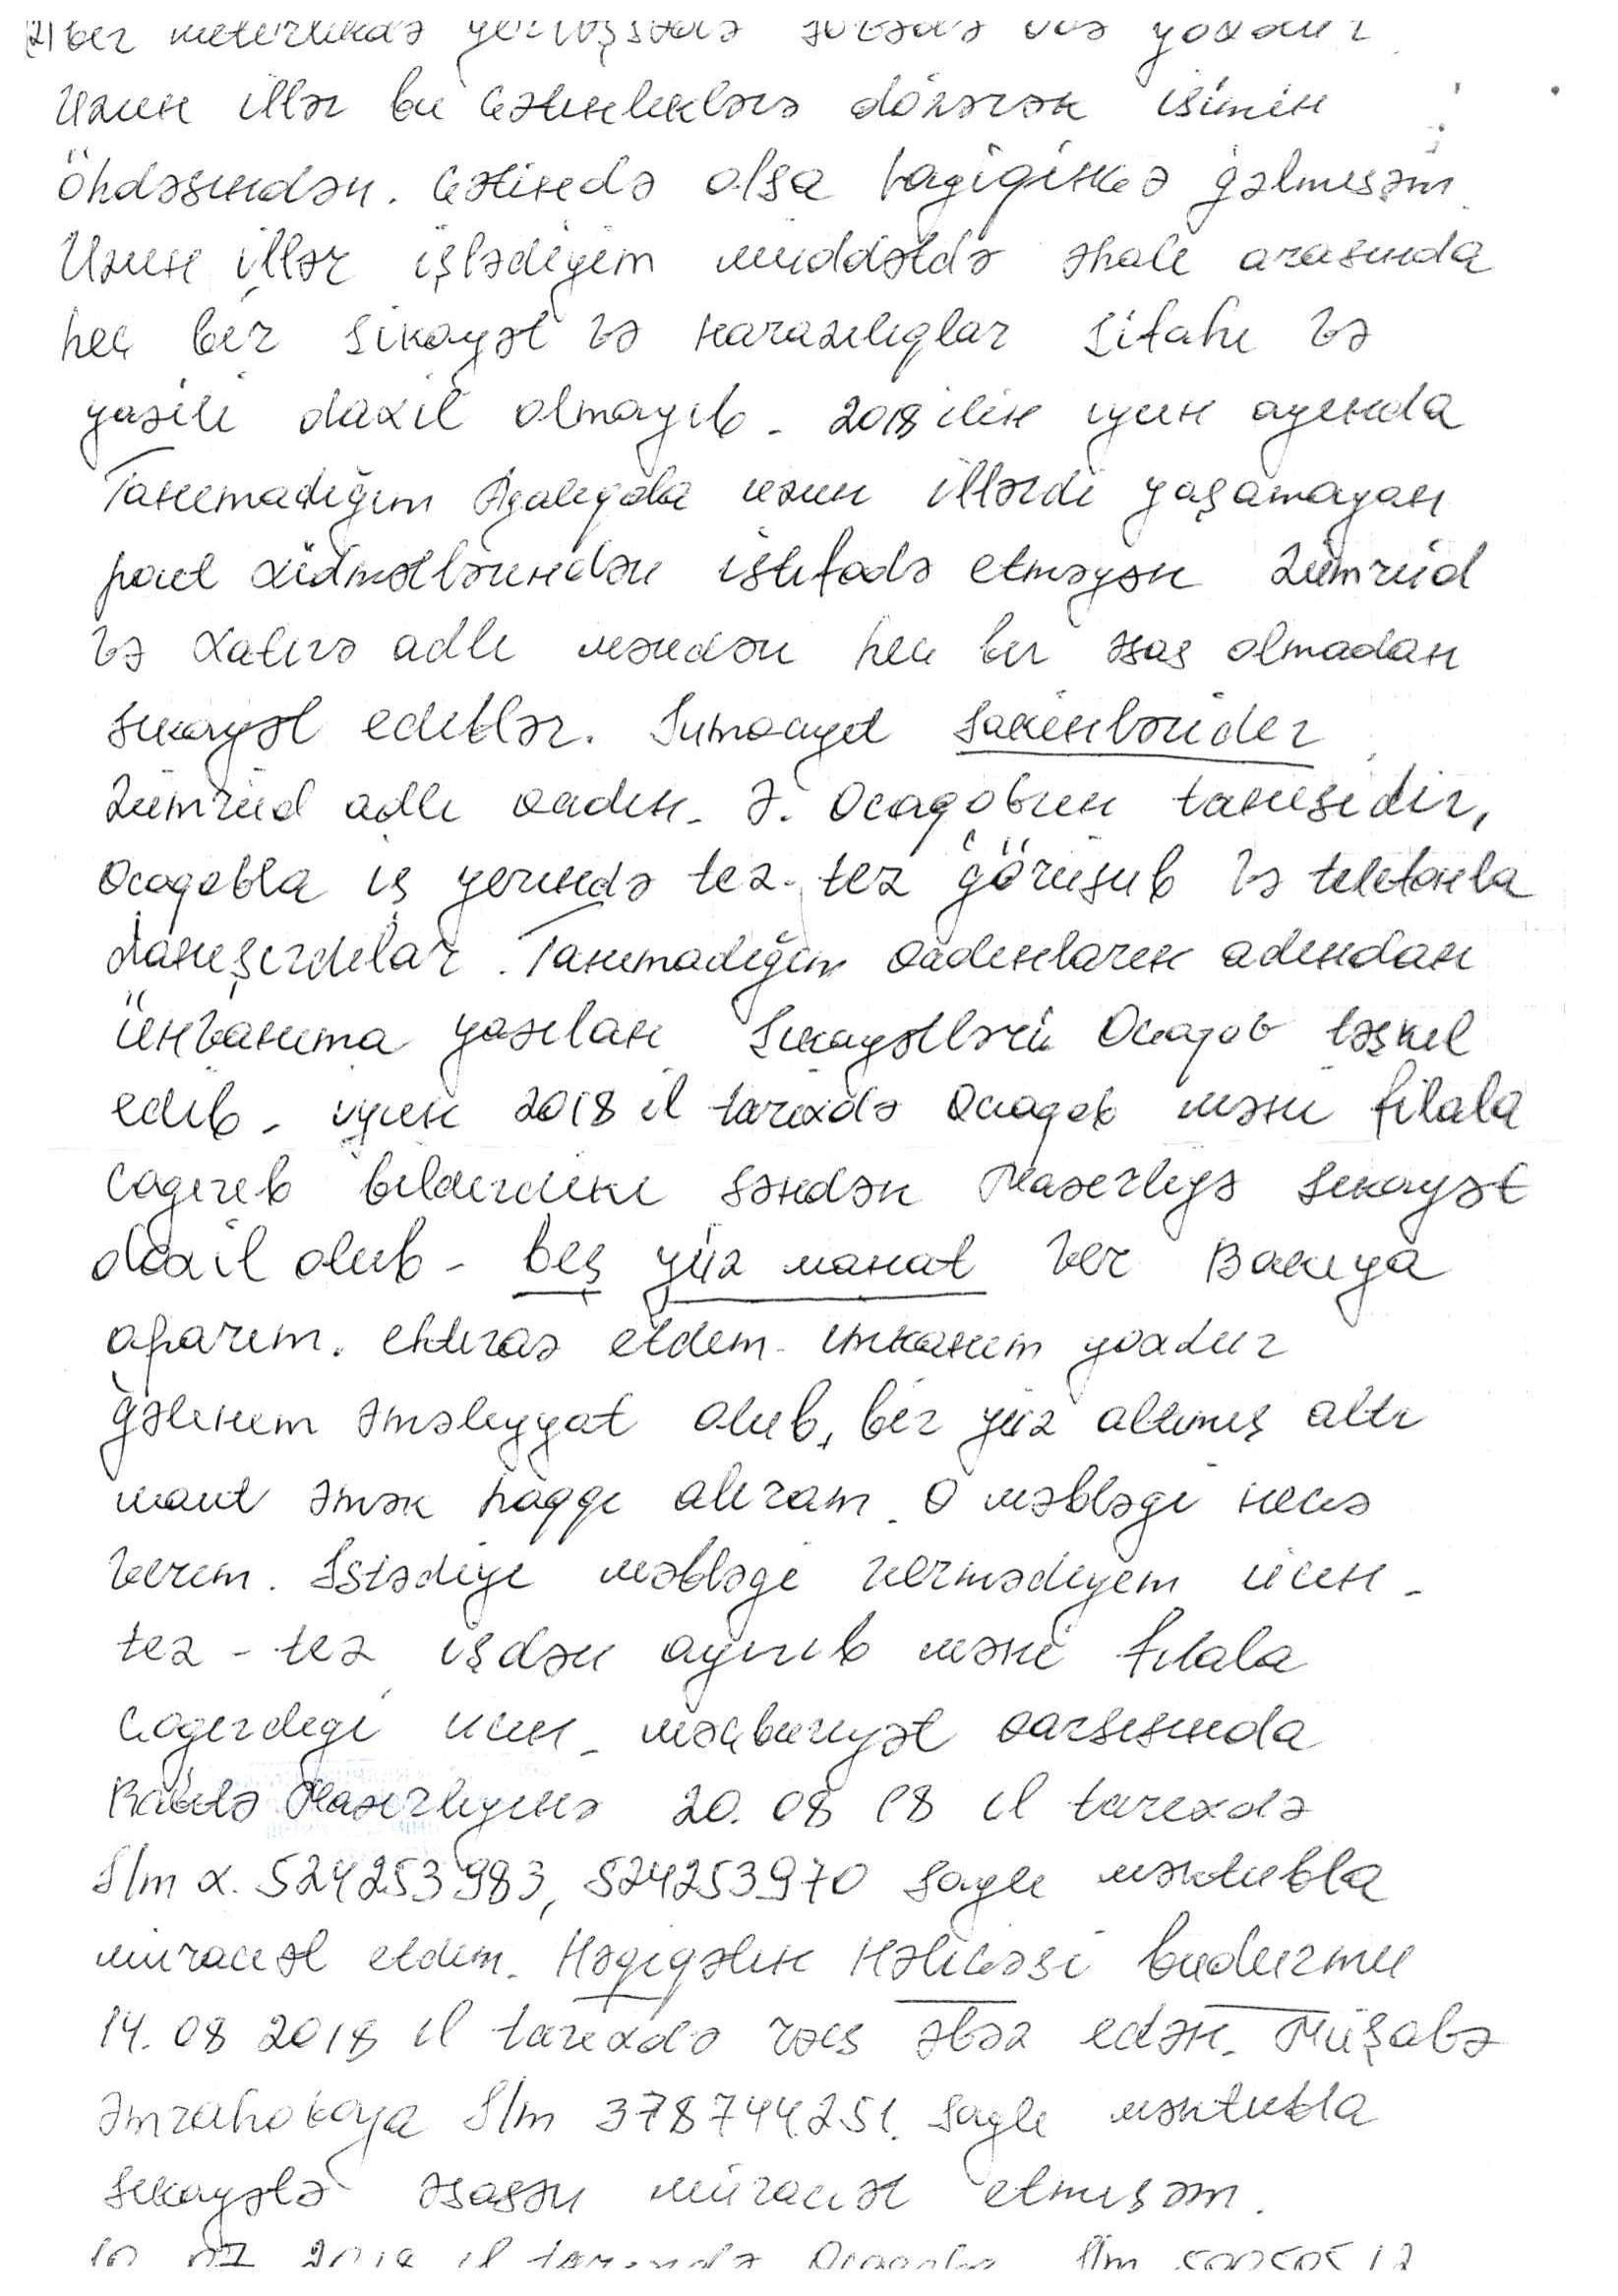 (2) bir
Uzun illər bu çətinliklərə dözərək işimin
öhdəsindən. Çətində olsa layiqinkə gəlmişəm.
Uzun illər işlədiyim müddətdə əhali arasında
heç bir şikayət və narazılıqlar şifahi və
yazili daxil olmayıb. 2018 ilin iyun ayında
Tanımadığım uzun illərdi yaşamayan
poct xidmətlərindən istifadə etməyən Zümrüd
və Xatirə adlı məndən heç bir əsas olmadan
şikayət ediblər. Sumqayıt sakinləridir
Zümrüd adlı qadın. Ə. Ocaqovun tanışıdir,
Ocaqovla iş yerində tez-tez görüşub və telefonla
danışırdılar. Tanımadığım qadınların adından
ünvanıma yazılan şikayətləri Ocaqov təşkil
edib. iyun 2018 il tarixdə Ocaqov məni filala
çağırıb bildirdiki səndən Nazirliyə şikayət
daxil olub - beş yüz manat ver Bakıya
aparım. etiraz etdim. imkanım yoxdur
gəlinim əməliyyat olub, bir yüz altımış altı
manat əmək haqqı alıram. O məbləği necə
verim. İstədiyi məbləği vermədiyim ücün -
tez - tez işdən ayırıb məni filala
çağırdıgi ücün - məcburiyət qarşısında
Rabitə Nazirliyinə 20.08 18 il tarixdə
S/m x. 524253983, 524253970 saylı məktubla
müraciət etdim. Həqiqətin nəticəsi budurmu
14.08 2018 il tarixdə rəis əvəz edən. Müşabə
Əmrahovaya S/m 378744251. saylı məktubla
şikayətə əsasən müraciət etmişəm.